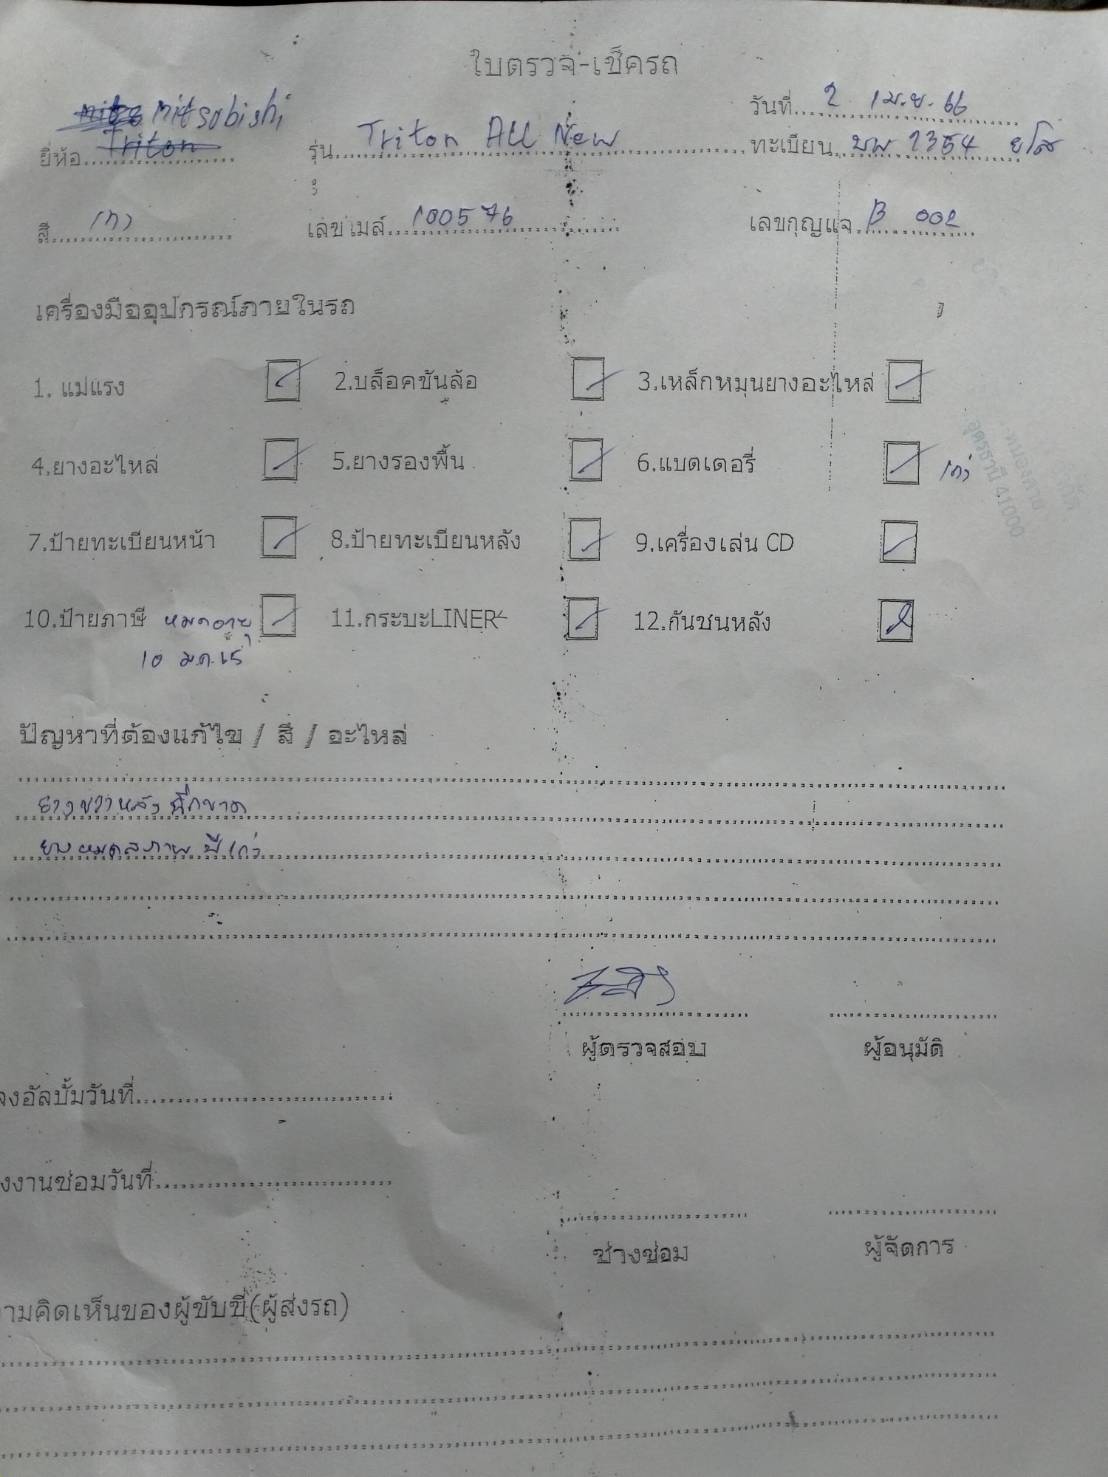 ใบตรวจ-เช็ครถ
วันที่ 2 เม.ย. 66
ยี่ห้อ Mitsubishi รุ่น Triton All New ทะเบียน บพ 2354 ยโส
สี เทา เลขไมล์ 100576 เลขกุญแจ B 002
เครื่องมืออุปกรณ์ภายในรถ
1. แม่แรง 2.บล็อคขันล้อ 3.เหล็กหมุนยางอะไหล่
4.ยางอะไหล่ 5.ยางรองพื้น 6.แบตเตอรี่ เก่า
7.ป้ายทะเบียนหน้า 8.ป้ายทะเบียนหลัง 9.เครื่องเล่น CD
10.ป้ายภาษี หมดอายุ 11.กระบะLINER 12.กันชนหลัง
10 ม.ค. 65
ปัญหาที่ต้องแก้ไข / สี / อะไหล่
ยางขวาหลัง ฉีกขาด
ยางหมดสภาพ ปีเก่า
ผู้ตรวจสอบ ผู้อนุมัติ
ลงอัลบั้มวันที่
งงานซ่อมวันที่
ช่างซ่อม ผู้จัดการ
ามคิดเห็นของผู้ขับขี่(ผู้ส่งรถ)